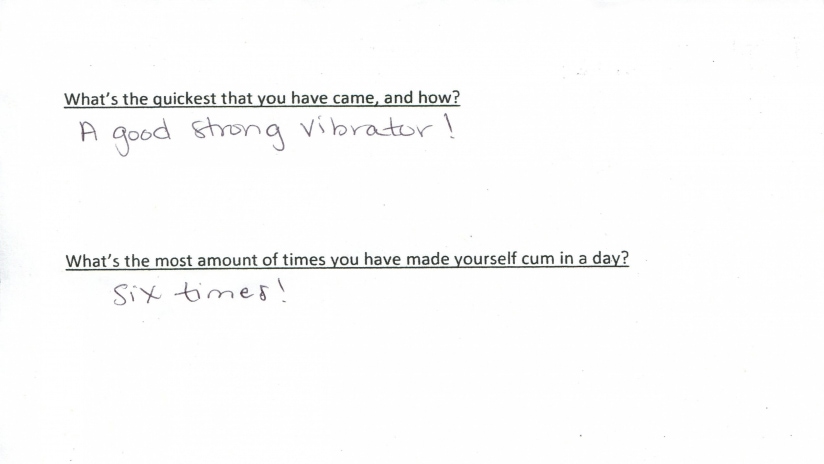 What's the quickest that you have came, and how?
A good strong vibrator!
What's the most amount of times you have made yourself cum in a day?
Six times!